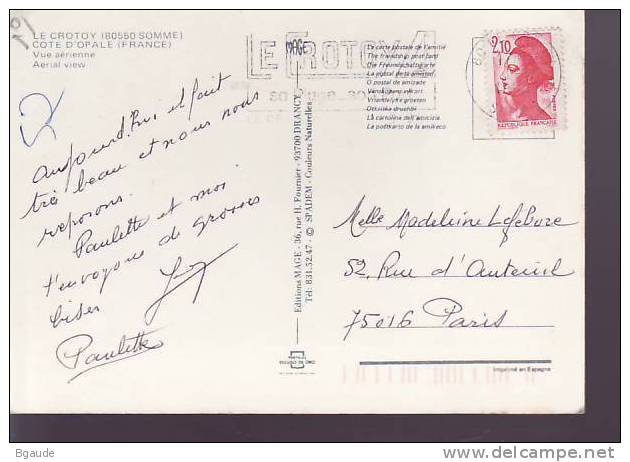 LE CROTOY (80550 SOMME)
COTE D'OPALE (FRANCE)
Vue aérienne
Aerial view
52
Aujourd'hui il fait
très beau et nous nous
reposons.
Paulette et moi
t'envoyons de grosses
bises
Paulette
Editions MAGE - 36, rue H. Fournier - 93700 DRANCY
Tél: 831.52.47 - © SPADEM - Couleurs Naturelles
MAGE
LE CROTOY
La carte postale de l'amitié
The friendship post card
Die Freundschaftskarte
La postal de la amistad
O postal da amizade
Vriendelijke groeten
La cartolina dell'amicizia
La postkarto de la amikeco
2,10
REPUBLIQUE FRANÇAISE
Melle Madeleine Lefebvre
52, Rue d'Auteuil
75016 Paris
Imprimé en Espagne
Bgaude
www.delcampe.net